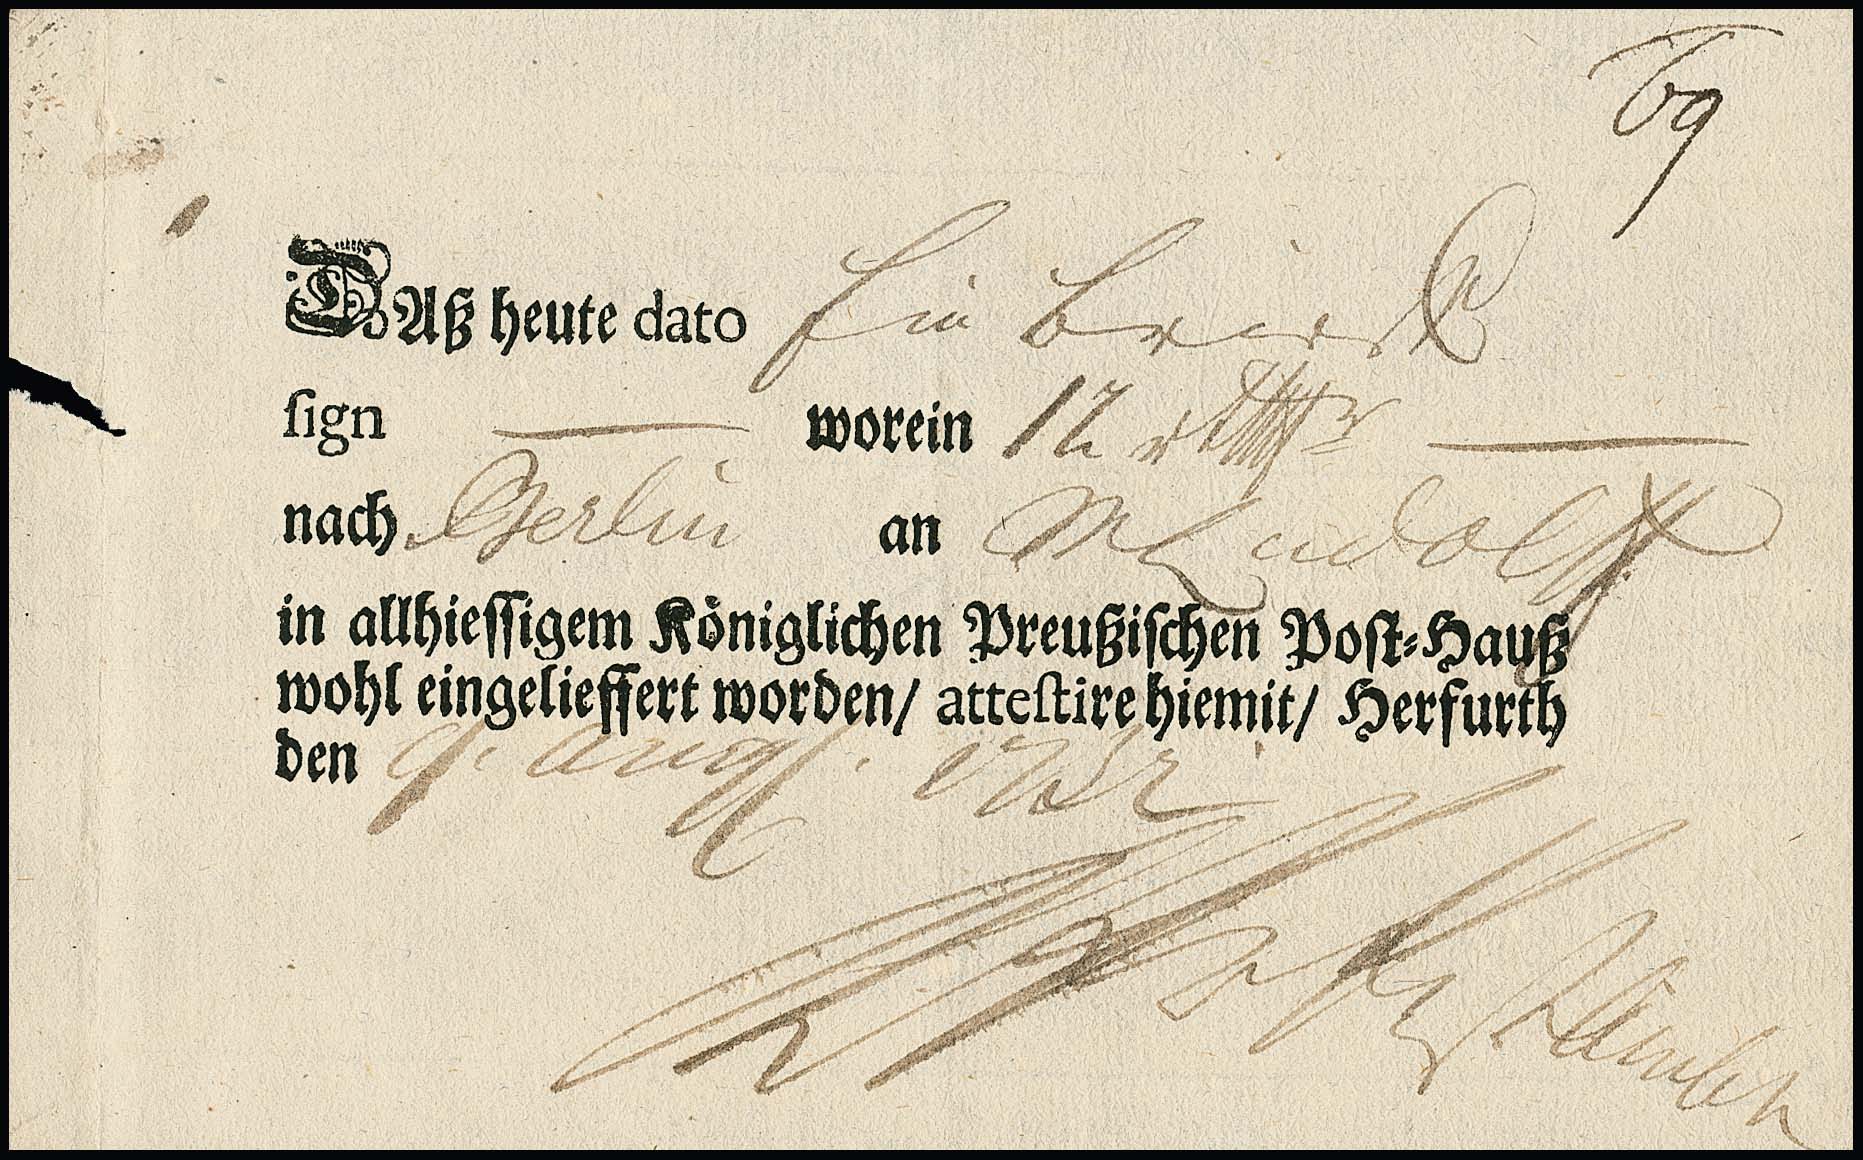 69
DAß heute dato Ein brieff
ſign worein 12
nach Berlin an M Ludolff
in allhieſſigem Königlichen Preußiſchen Poſt-Hauß
wohl eingelieffert worden/ atteſtire hiemit/ Herfurth
den 9. aug